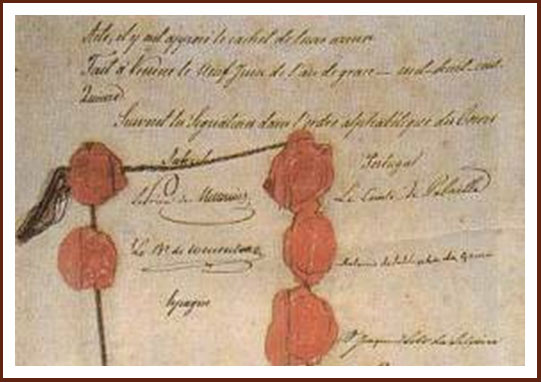 Acte, et y ont apposé le cachet de leurs armes
Fait à Vienne le Neuf Juin de l'an de grace mil-huit-cent
Suivent les Signatures dans l'ordre alphabétique des Cours
de Metternich
Le Bn. de
Espagne
Portugal
Le Comte de Palmella
Antonio de Saldanha da Gama
Joaquim Lobo da Silveira